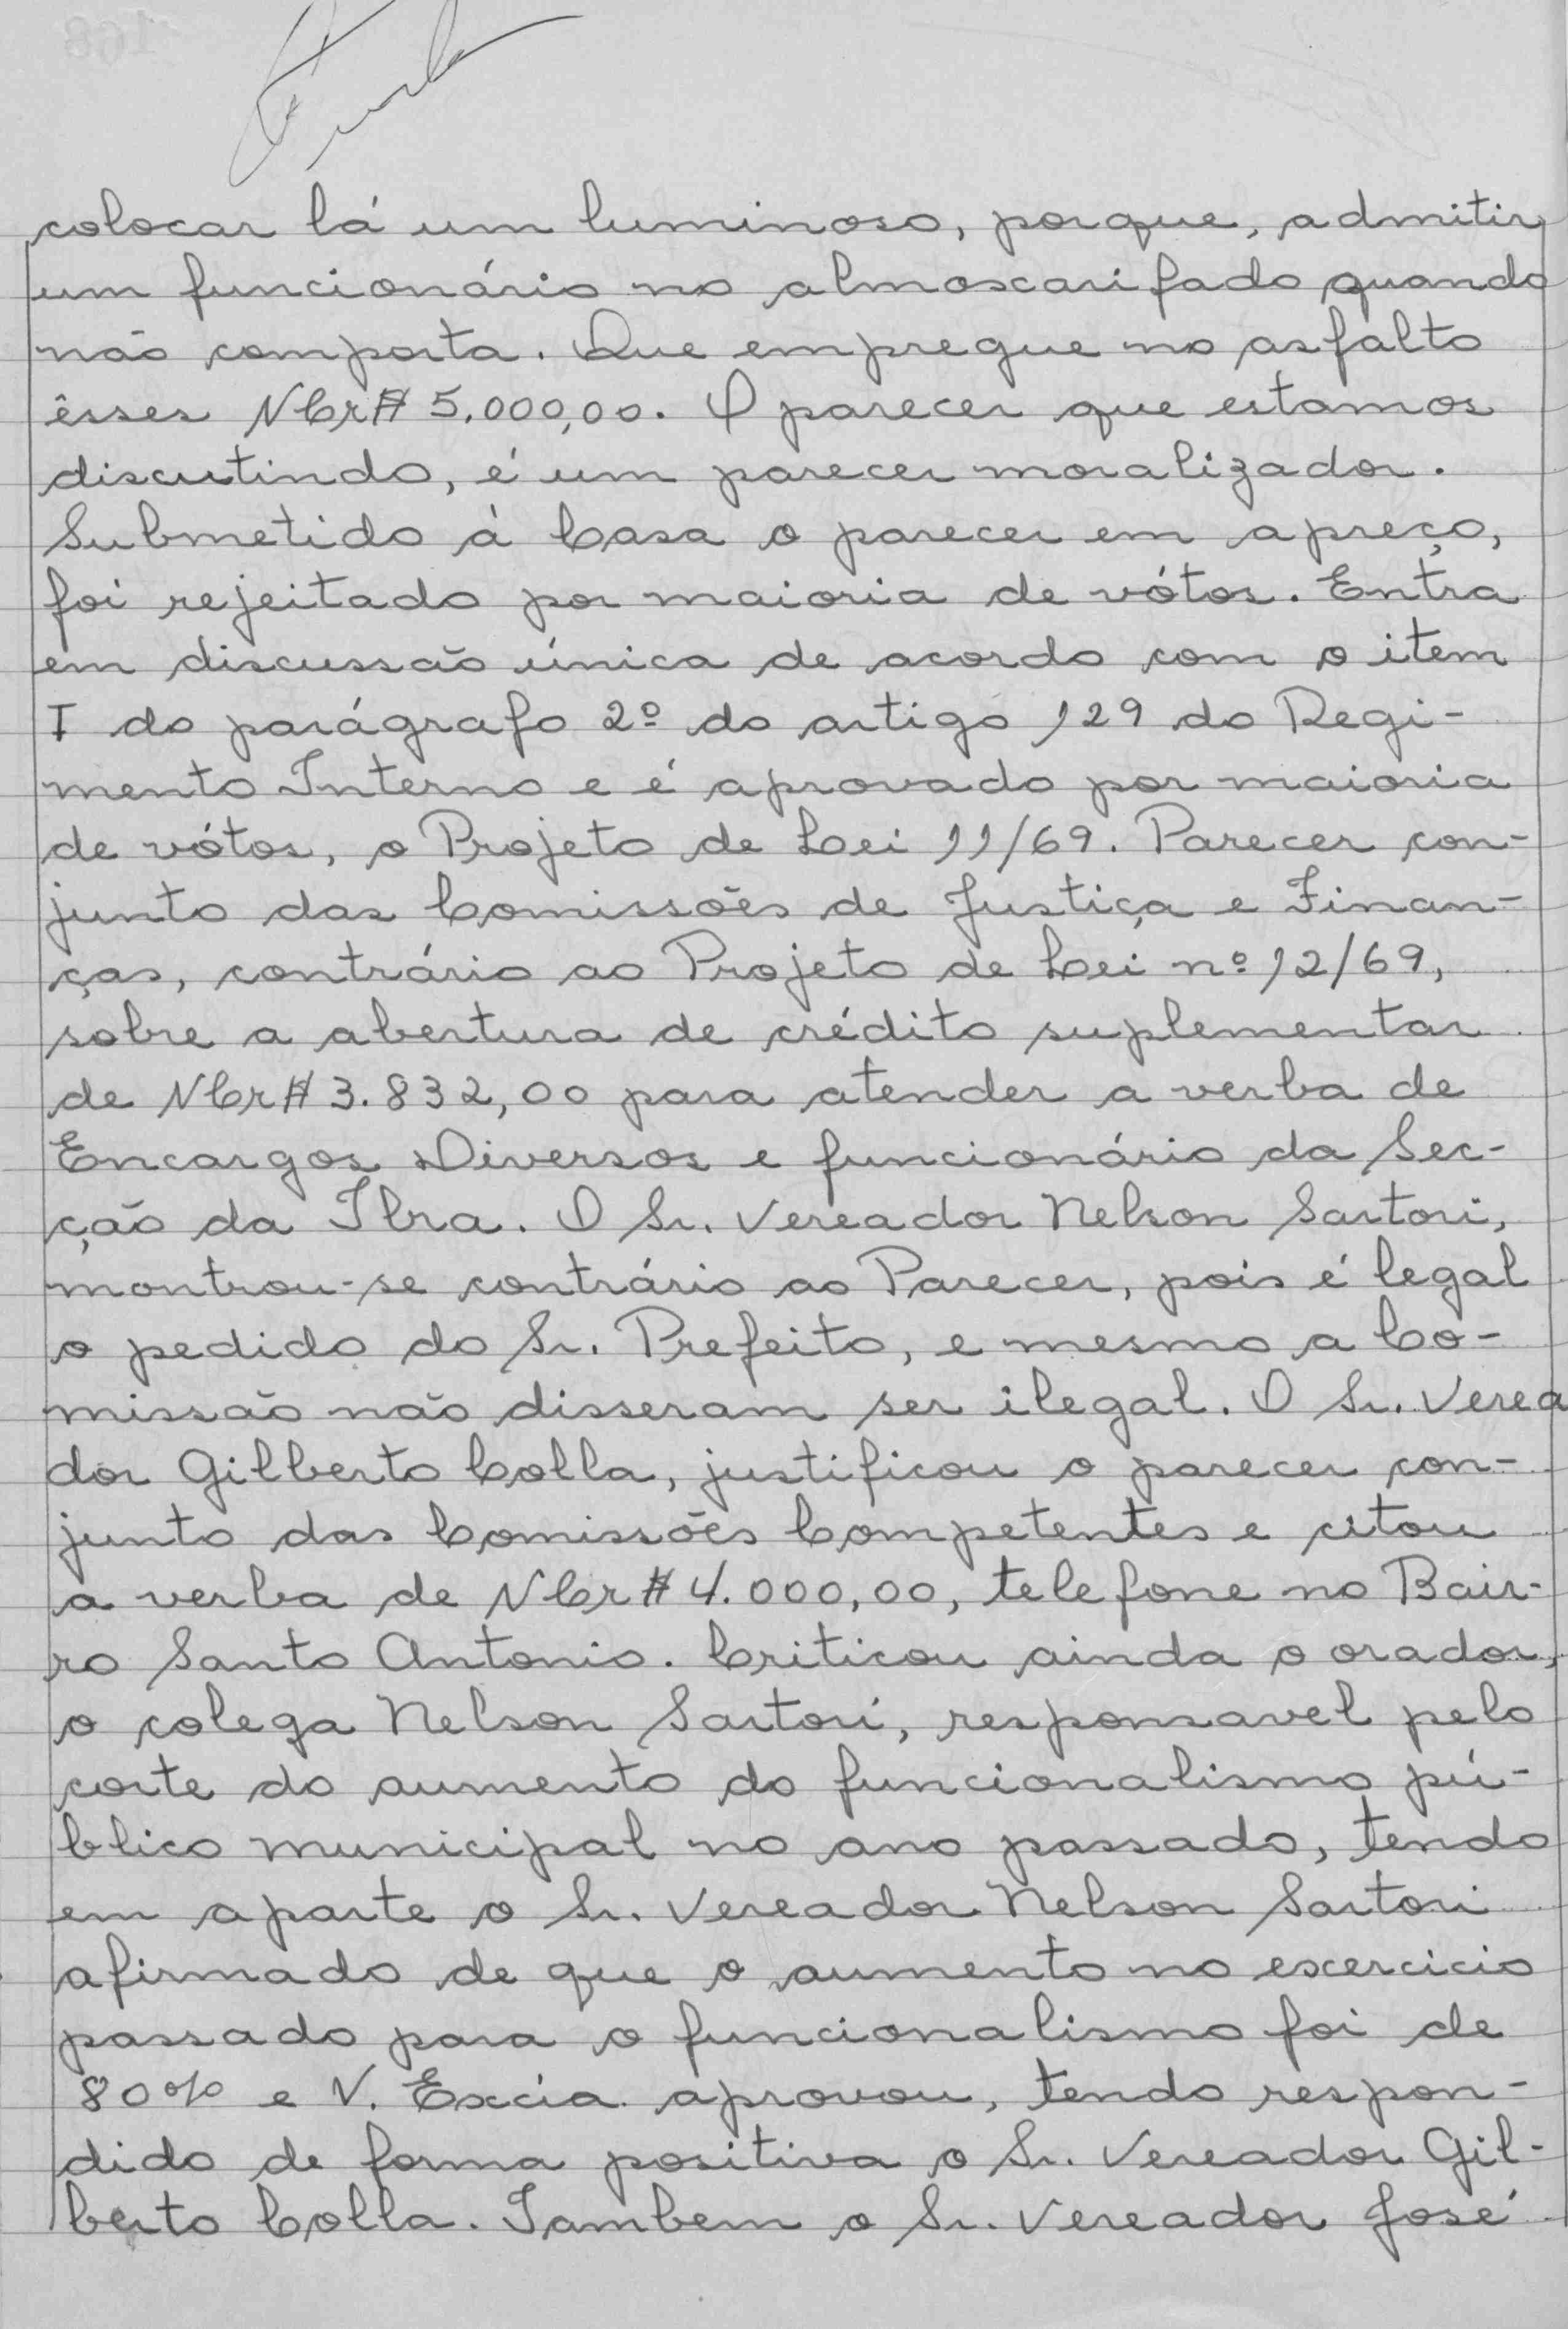 colocar lá um luminoso, porque, admitir
um funcionário no almoscarifado quando
não comporta. Que empregue no asfalto
êsses NCr$ 5.000,00. O parecer que estamos
discutindo, é um parecer moralizador.
Submetido à Casa o parecer em apreço,
foi rejeitado por maioria de vótos. Entra
em discussão única de acordo com o item
I do parágrafo 2º do artigo 129 do Regi-
mento Interno e é aprovado por maioria
de vótos, o Projeto de Lei 11/69. Parecer con-
junto das Comissões de Justiça e Finan-
ças, contrário ao Projeto de Lei nº 12/69,
sobre a abertura de crédito suplementar
de NCr$ 3.832,00 para atender a verba de
Encargos Diversos e funcionário da Sec-
ção da Ibra. O Sr. Vereador Nelson Sartori,
montrou-se contrário ao Parecer, pois é legal
o pedido do Sr. Prefeito, e mesmo a Co-
missão não disseram ser ilegal. O Sr. Verea
dor Gilberto Colla, justificou o parecer con-
junto das Comissões Competentes e citou
a verba de NCr$ 4.000,00, telefone no Bair-
ro Santo Antonio. Criticou ainda o orador,
o colega Nelson Sartori, responsavel pelo
corte do aumento do funcionalismo pú-
blico municipal no ano passado, tendo
em aparte o Sr. Vereador Nelson Sartori
afirmado de que o aumento no excercicio
passado para o funcionalismo foi de
80% e V. Excia. aprovou, tendo respon-
dido de forma positiva o Sr. Vereador Gil-
berto Colla. Tambem o Sr. Vereador José